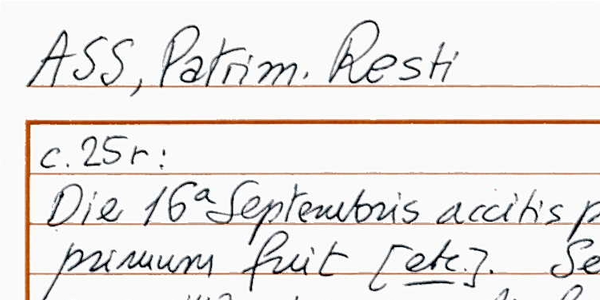 ASS, Patrim. Resti
c. 25r:
Die 16ª Septembris accitis
primum fuit [etc.]. Se